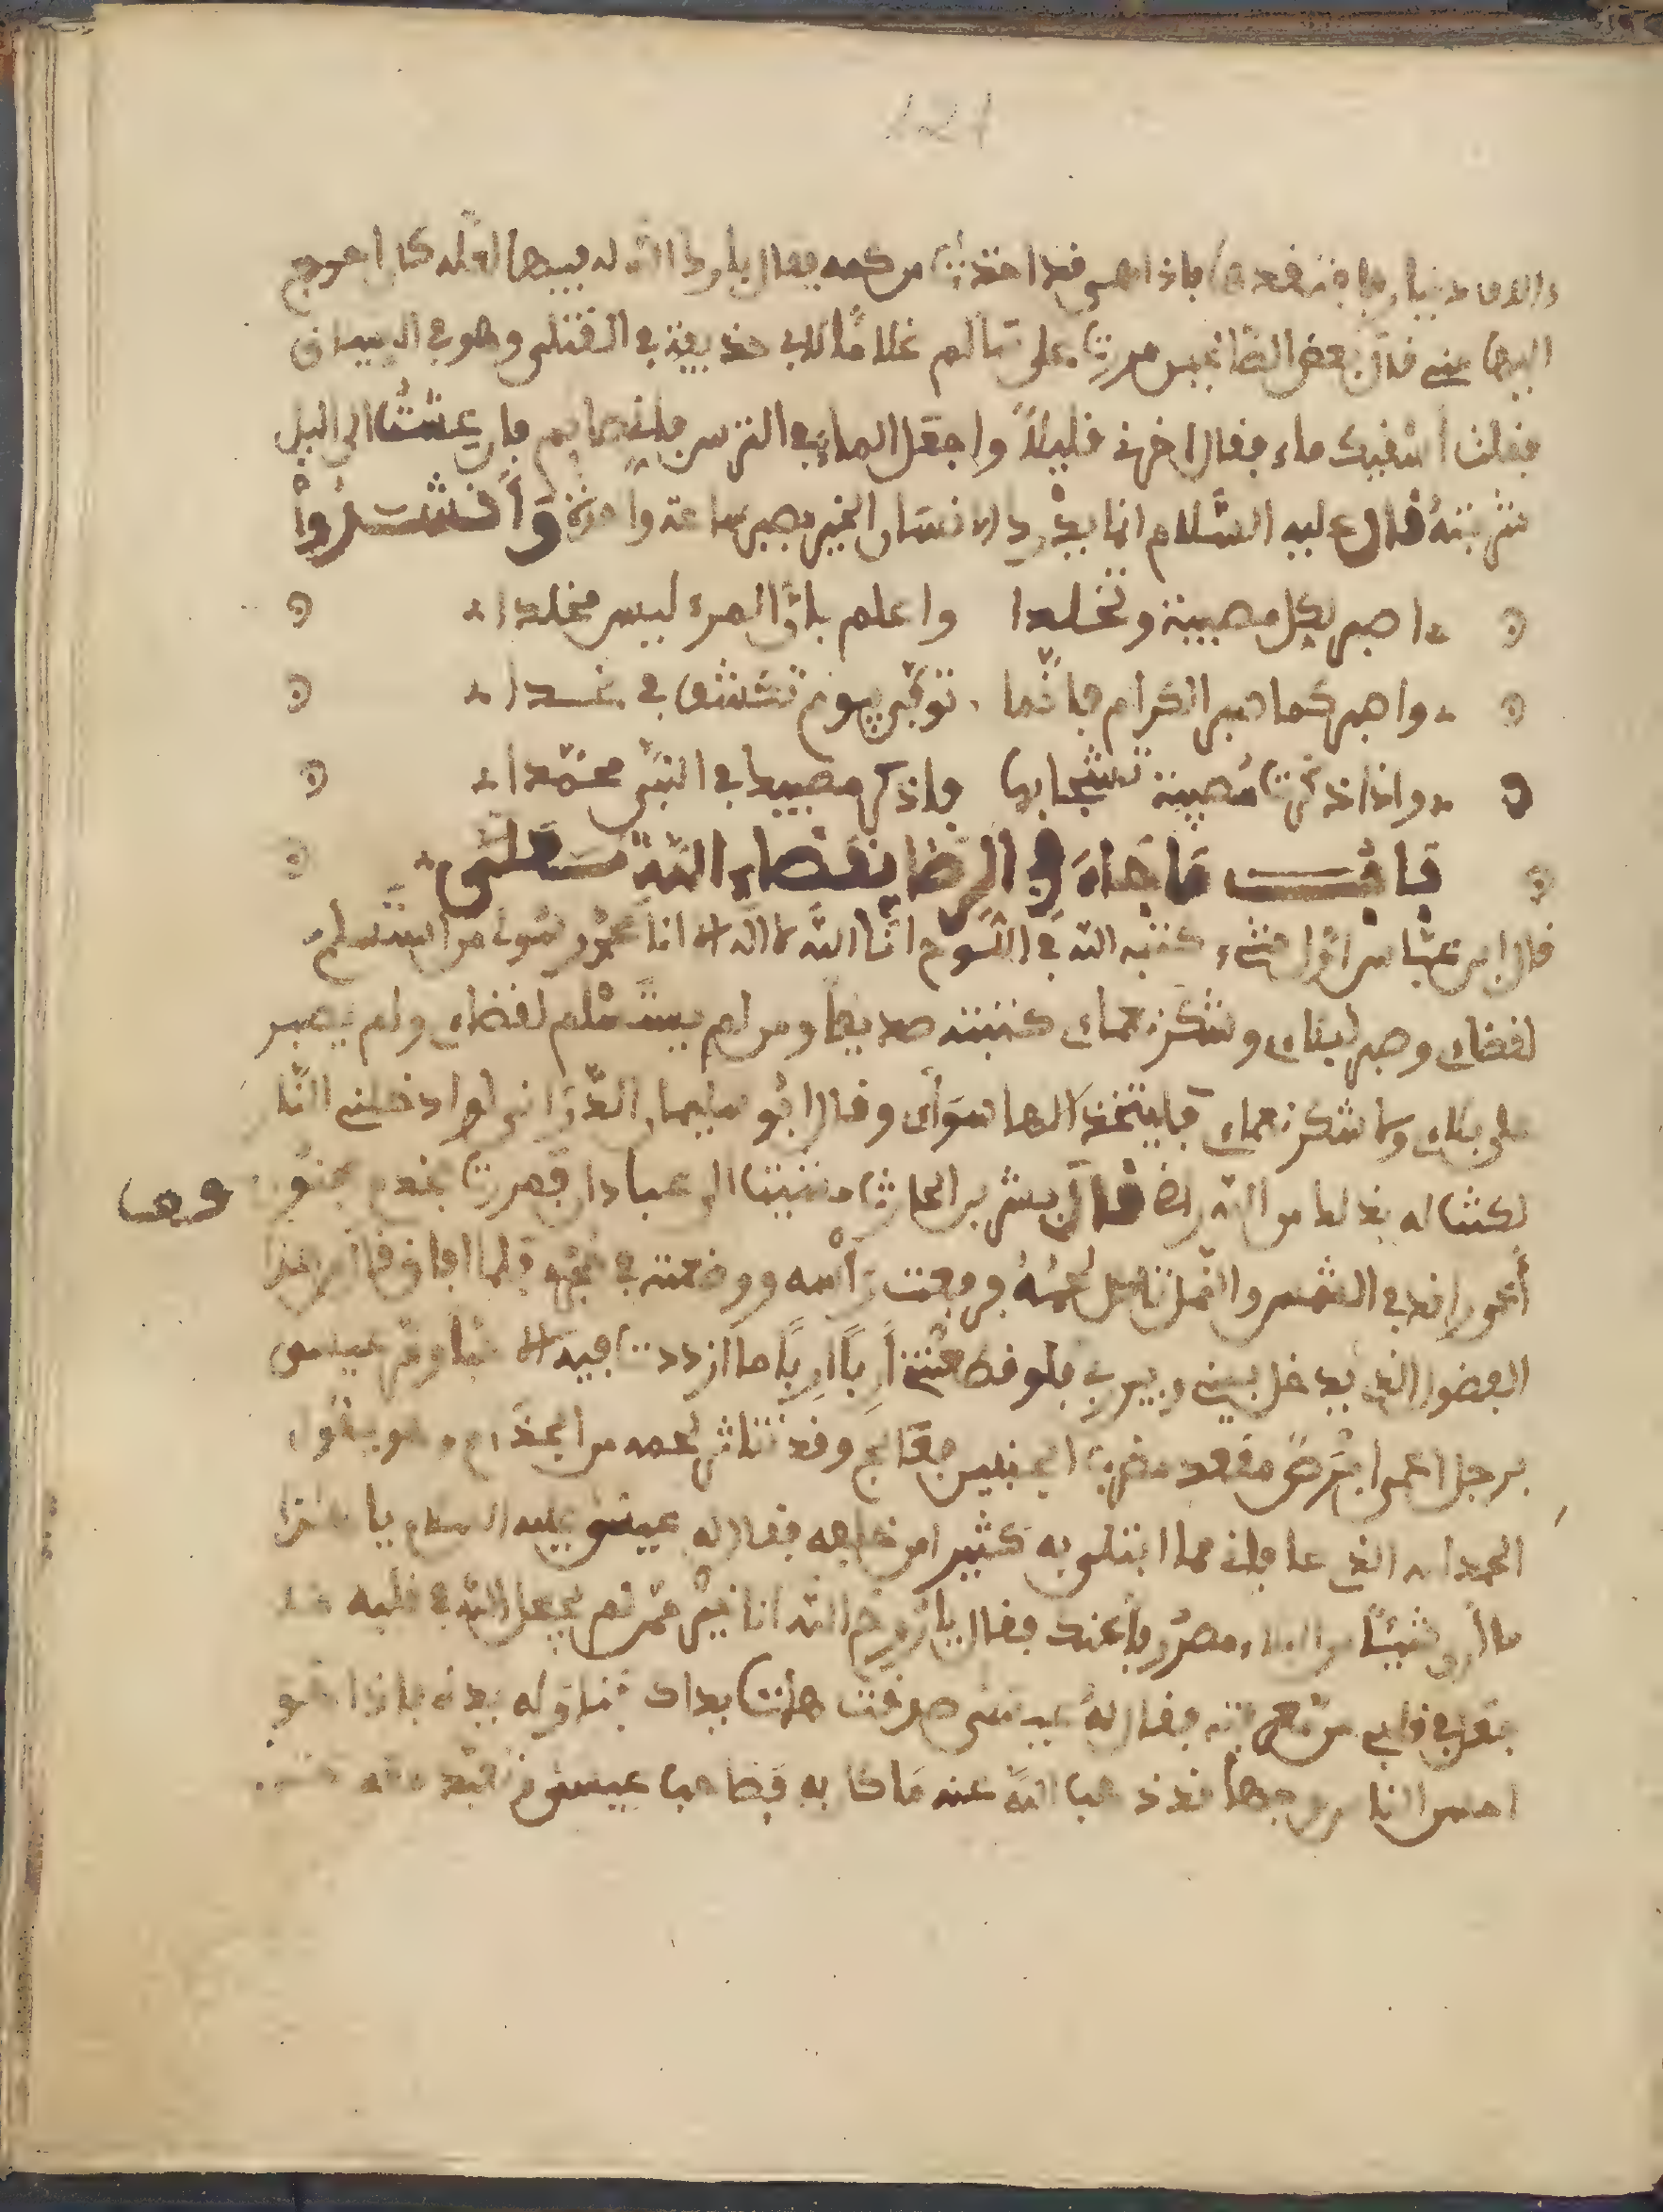 121
فافتقدها فاذا هي قد اخذت من كمه فقال بارك الله له فيها لعله كان احوج
اليها مني قال بعض الصالحين مررت على سالم غلام لابي حذيفة في القتلى وهو في الميدان
فقلت اسقيك ماء فقال اخرني قليلاً واجعل الماء في الترس فاني صايم فان عشت الى الليل
شربته قال عليه السلام انما يدرك الانسان الخير بصبر ساعة واحدة وأنشدوا
اصبر لكل مصيبة وتجلدا واعلم بأن المرء ليس مخلدا
واصبر كما صبر الكرام فانها نوب يوم تكشف في غدا
واذا ذكرت مصيبة تشجا بها فاذكر مصيبك في النبي محمدا
باب ما جاء في الرضا بقضاء الله تعلى
قال ابن عباس اول شيء كتبه الله في اللوح انا الله لا اله الا انا محمد رسولي من استسلم
لقضاي وصبر لبلاي وشكر نعماي كتبته صديقاً ومن لم يستسلم لقضاي ولم يصبر
على بلاي ولا شكر نعماي فليتخذ الها سوآي وقال ابو سليمان الدراني لو ادخلني النار
لكنت له بذلك من الله راض قال بشر بن الحارث مشيت الى عبادان فمررت بمجذوم مجنون
أعور في الشمس والنمل تاكل لحمه فرفعت رأسه ووضعته في حجري فلما افاق قال من هذا
الفضول الذي يدخل بيني وبين ربي فلو قطعني إربا إربا ما ازددت فيه الا حبا ومر عيسى
برجل اعمى ابرص مقعد مضروب الجنبين بفالج وقد تناثر لحمه من الجذام وهو يقول
الحمد لله الذي عافاني مما ابتلى به كثيرا من خلقه فقال له عيسى عليه السلام يا هذا
ما أرى شيئاً من البلاء مصروفا عنك فقال يا روح الله انا خير ممن لم يجعل الله في قلبه ما
جعل في قلبي من معرفته فقال له عيسى صدقت هات يدك فناوله يده فاذا هو
احسن الناس وجها قد ذهب الله عنه ما كان به فصاحب عيسى